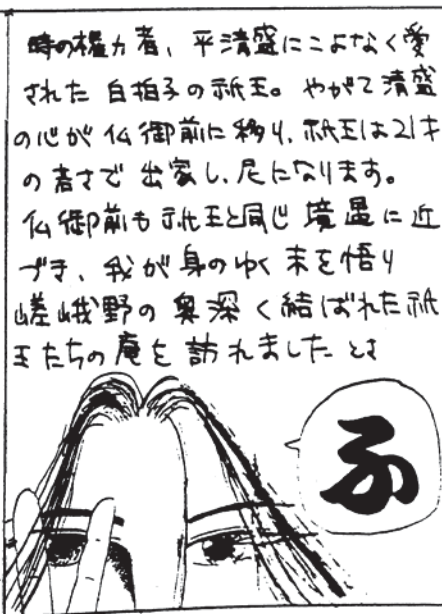 時の権力者、平清盛にこよなく愛
された 白拍子の祇王。やがて清盛
の心が 仏御前に移り、祇王は21才
の若さで 出家し、尼になります。
仏御前も 祇王と同じ 境遇に 近
づき、我が身のゆく末を悟り
嵯峨野の 奥深く結ばれた祇
王たちの庵を訪れましたとさ
ふ